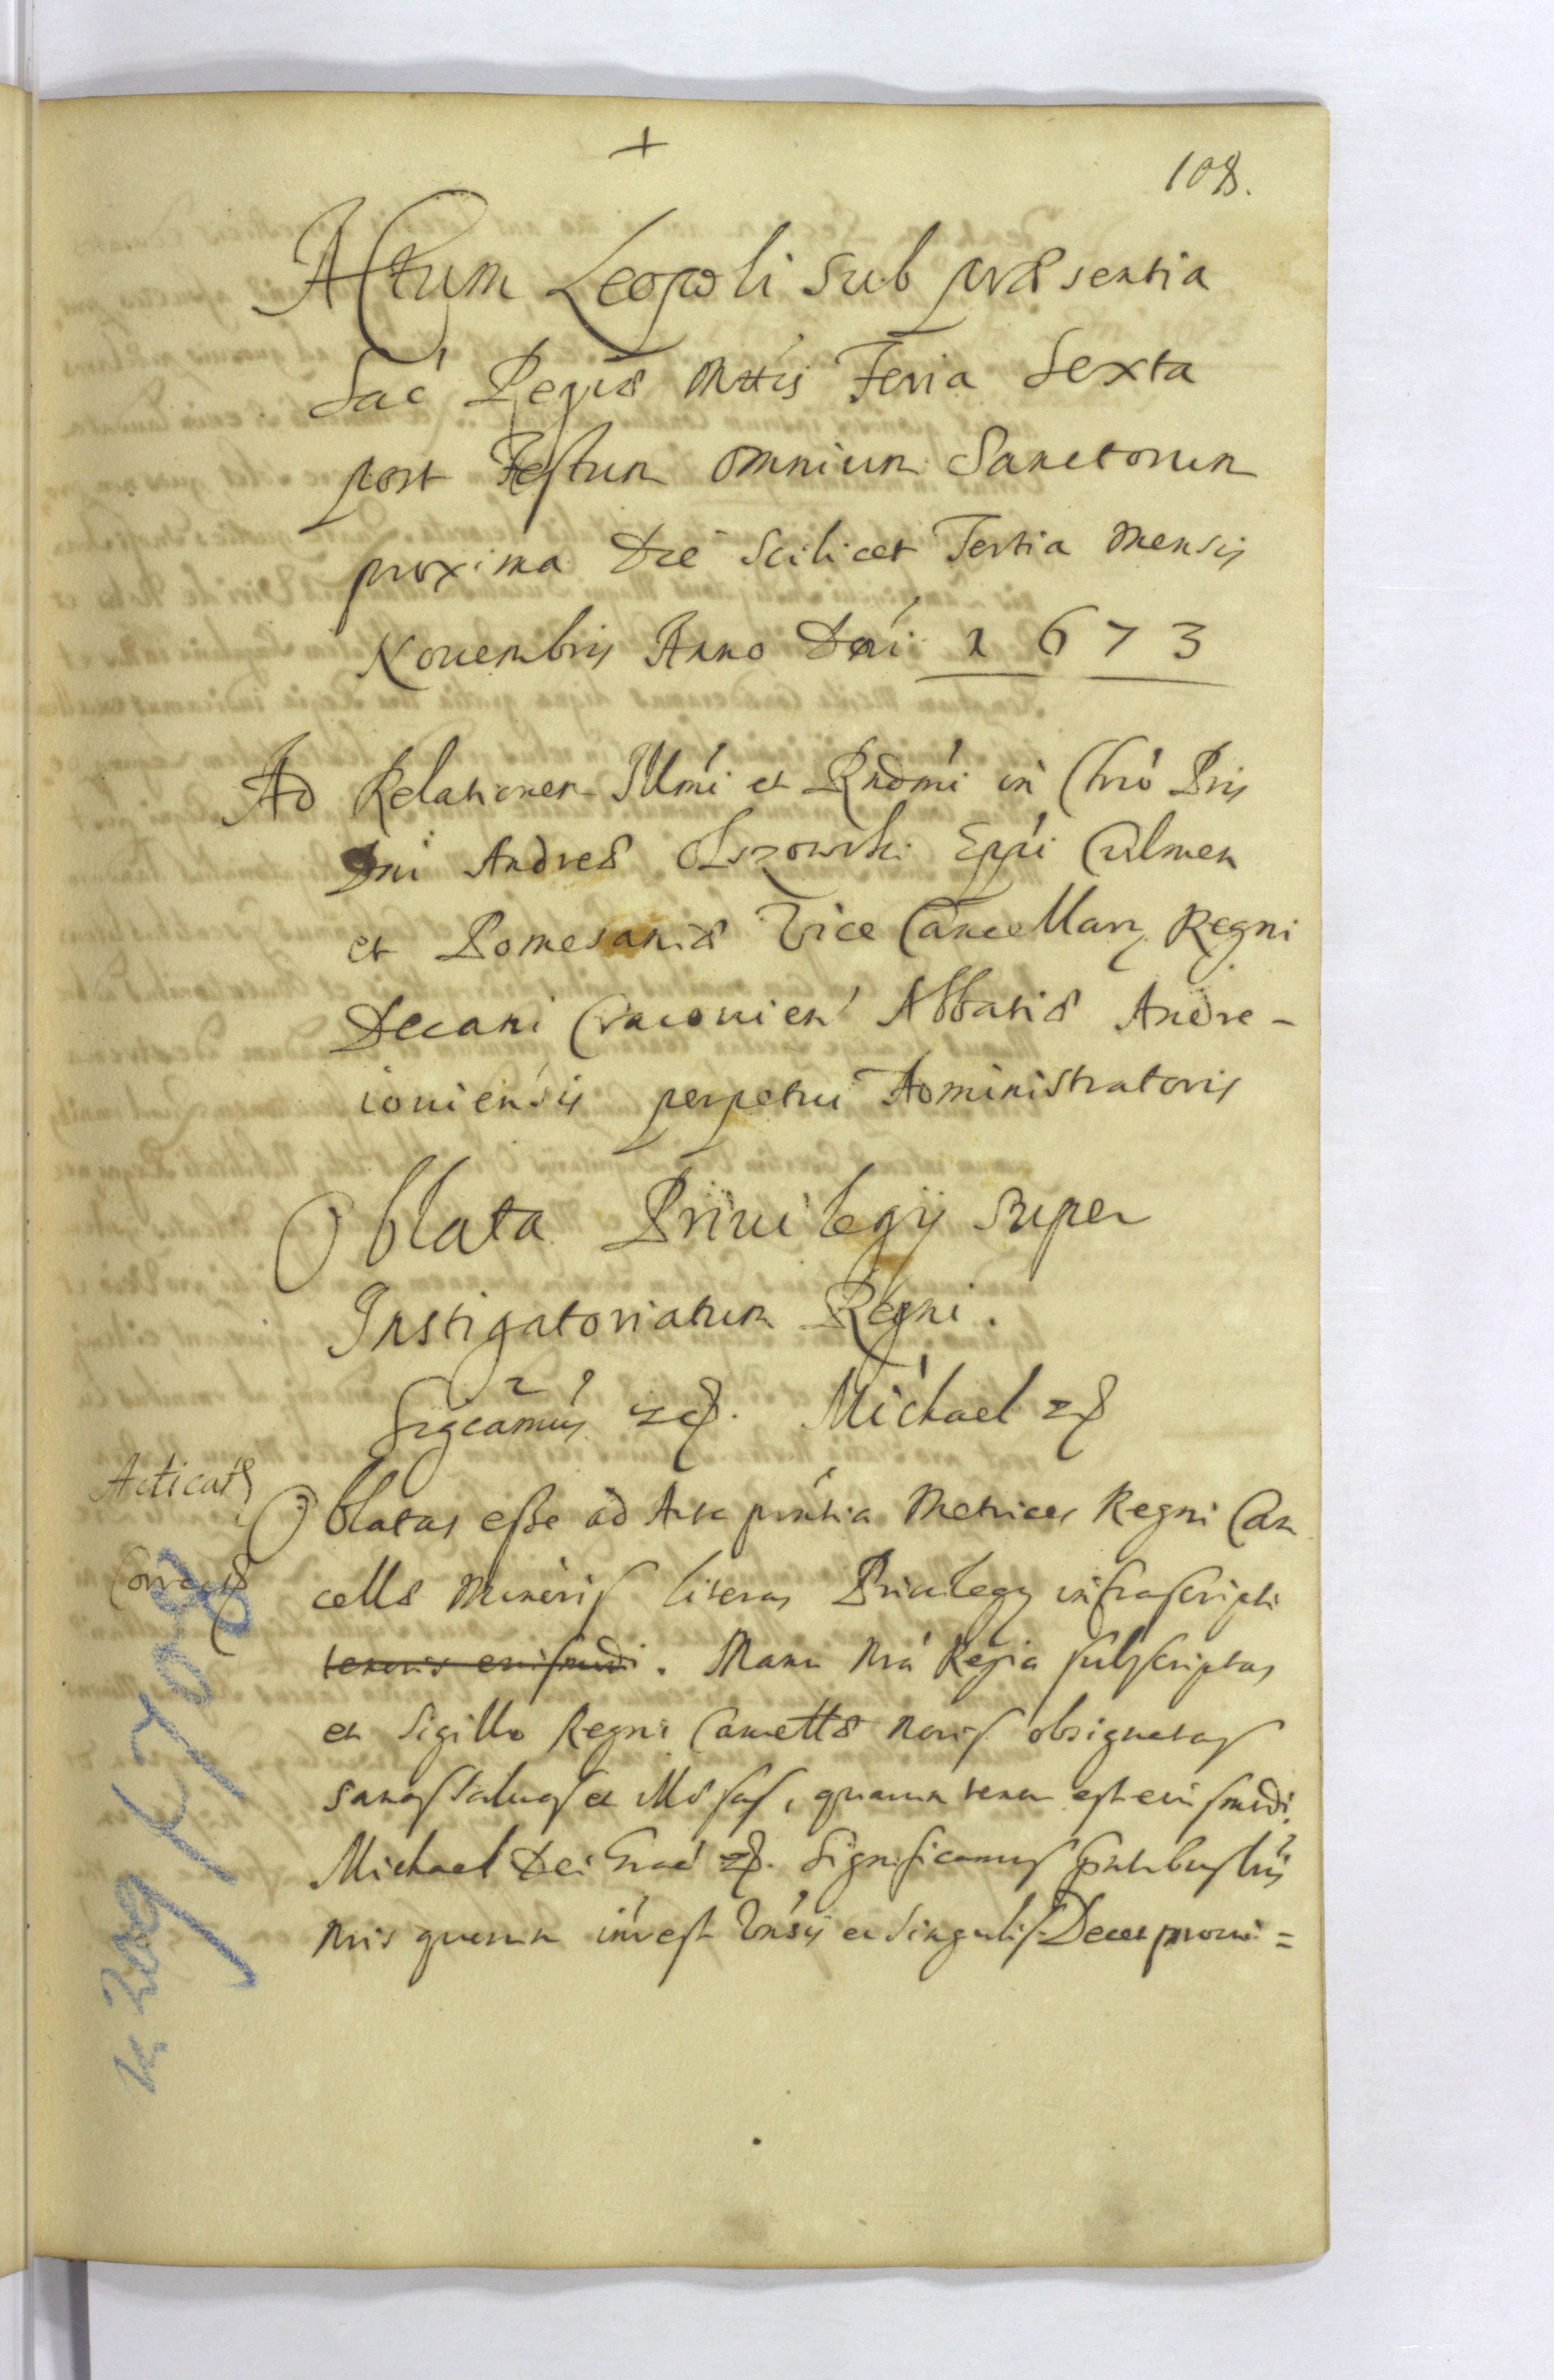 +
108.
Actum Leopoli sub præsentia
Sac Regiæ Mttis Feria Sexta
post Festum omnium Sanctorum
proxima Die Scilicet Tertia mensis
Nouembris Anno Dni 1673
Ad Relationem Illmi et Rndmi in Chro Pris
Dni Andreæ Olszowski Eppi Culmen
et Pomesaniæ Vice Cancellarÿ Regni
Decani Cracouien Abbatiæ Andre-
iouiensis perpetui Administratoris
Oblata Priuilegÿ super
Instigatoriatum Regni.
Sigcamus Michael
Acticat
Oblatas esse ad Acta prńtia Metrices Regni Can
Correct
cellæ Minoris literas Priuilegÿ infrascripti
tenoris eiusmodi. Manu Nrá Regia subscriptas
et Sigillo Regni Cancellæ obsignatas
sanas saluas et illæsas, quarum tenor est eiusmodi.
Michael Dei Grać Significamus prńtibus lris
nris quorum intrest Vnsis et Singulis. Decet proui=
K 708
K 209